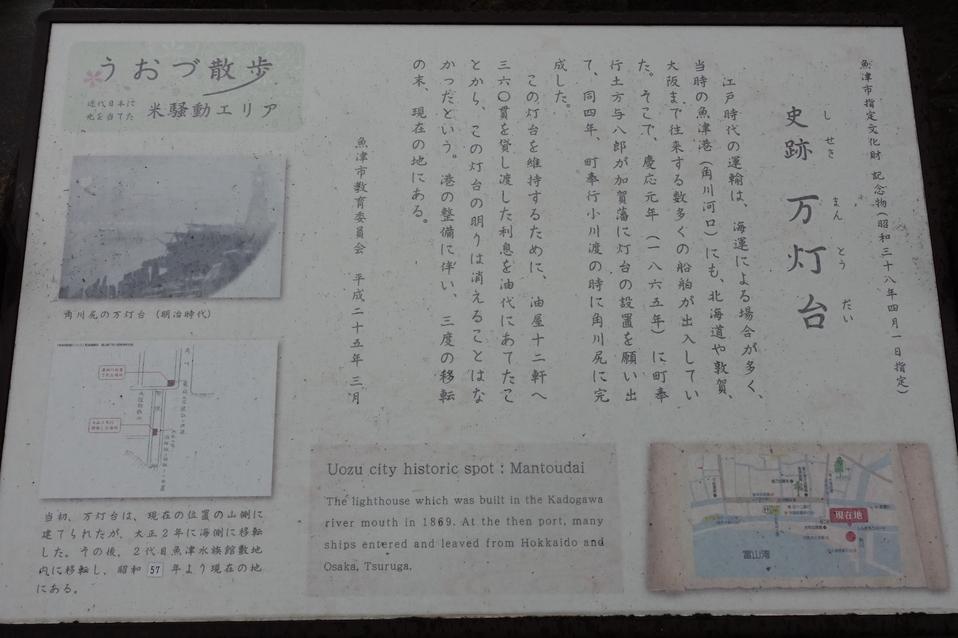 魚津市指定文化財 記念物(昭和三十八年四月一日指定)
しせき まんとうだい
史跡 万灯台
江戸時代の運輸は、海運による場合が多く、
当時の魚津港(角川河口)にも、北海道や敦賀、
大阪まで往来する数多くの船舶が出入してい
た。そこで、慶応元年(一八六五年)に町奉
行土方与八郎が加賀藩に灯台の設置を願い出
て、同四年、町奉行小川渡の時に角川尻に完
成した。
この灯台を維持するために、油屋十二軒へ
三六〇貫を貸し渡した利息を油代にあてたこ
とから、この灯台の明りは消えることはな
かったという。港の整備に伴い、三度の移転
の末、現在の地にある。
魚津市教育委員会 平成二十五年三月
うおづ散歩
近代日本に
光を当てた
米騒動エリア
角川尻の万灯台 (明治時代)
当初、万灯台は、現在の位置の山側に
建てられたが、大正2年に海側に移転
した。その後、2代目魚津水族館敷地
内に移転し、昭和57年より現在の地
にある。
Uozu city historic spot : Mantoudai
The lighthouse which was built in the Kadogawa
river mouth in 1869. At the then port, many
ships entered and leaved from Hokkaido and
Osaka, Tsuruga.
現在地
富山湾